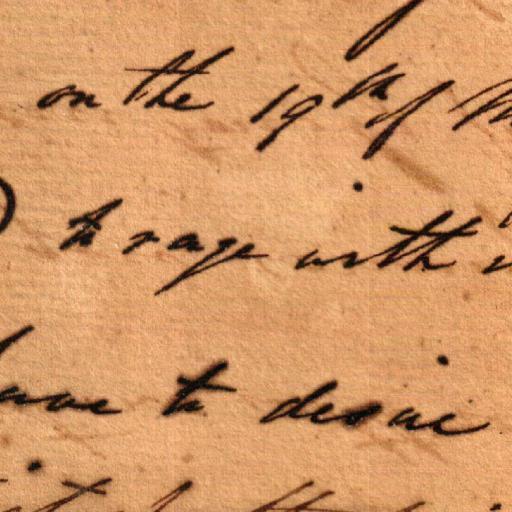 on the 19th of
to rage with
have to desire